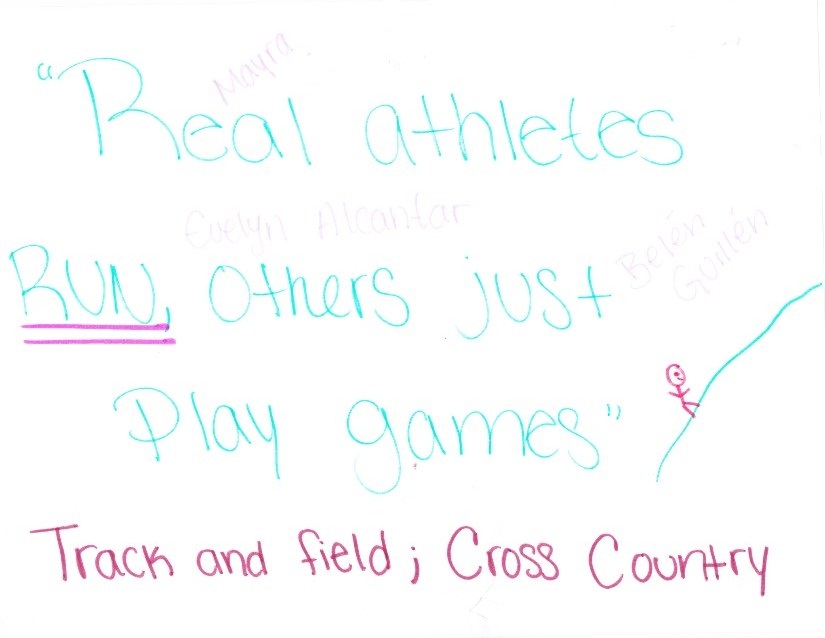 Mayra
"Real athletes
Evelyn Alcantar
RUN, others just
Belén
Guillén
Play games"
Track and field; Cross Country